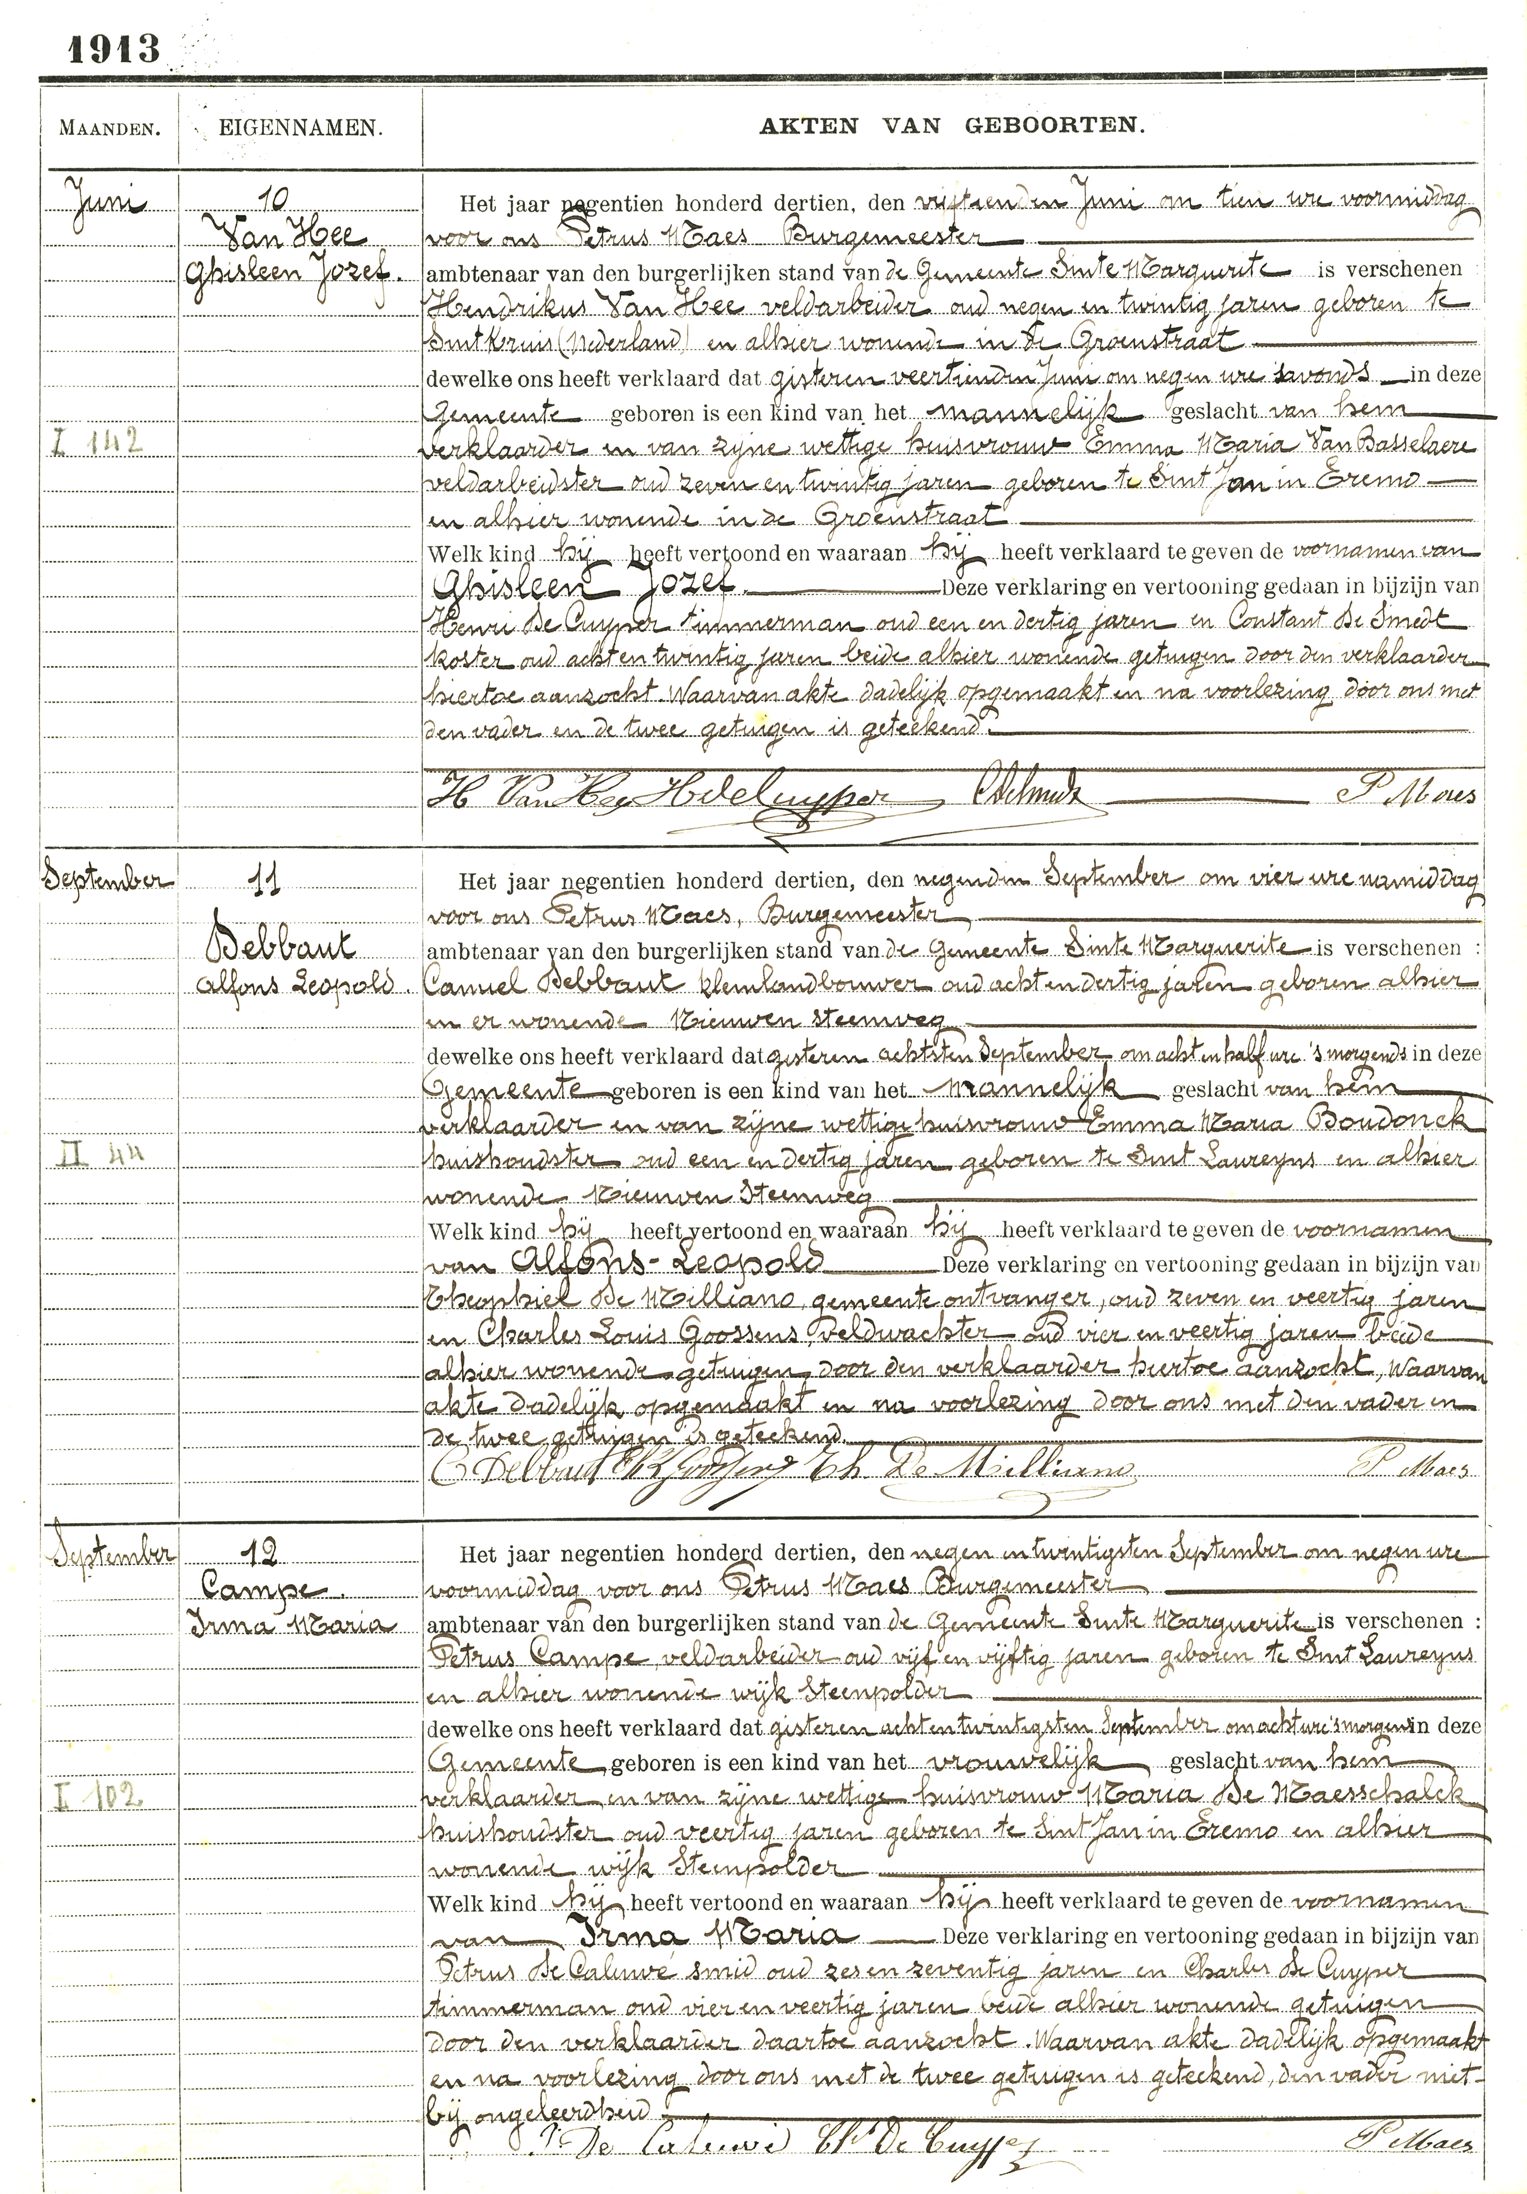 1913
MAANDEN.
EIGENNAMEN.
AKTEN VAN GEBOORTEN.
Juni
10
Van Hee
Ghisleen Jozef.
I 142
Het jaar negentien honderd dertien, den vijftienden Juni om tien ure voormiddag
voor ons Petrus Maes Burgemeester
ambtenaar van den burgerlijken stand van de Gemeente Sinte Marguerite is verschenen :
Hendrikus Van Hee veldarbeider oud negen en twintig jaren geboren te
Sint Kruis (Nederland) en alhier wonende in de Groenstraat
dewelke ons heeft verklaard dat gisteren veertienden Juni om negen ure 's avonds in deze
Gemeente geboren is een kind van het mannelijk geslacht van hem
verklaarder en van zijne wettige huisvrouw Emma Maria Van Basselaere
veldarbeidster oud zeven en twintig jaren geboren te Sint Jan in Eremo
en alhier wonende in de Groenstraat
Welk kind hij heeft vertoond en waaraan hij heeft verklaard te geven de voornamen van
Ghisleen Jozef. Deze verklaring en vertooning gedaan in bijzijn van
Henri De Cuyper timmerman oud een en dertig jaren en Constant De Smedt
koster oud acht en twintig jaren beide alhier wonende getuigen door den verklaarder
hiertoe aanzocht. Waarvan akte dadelijk opgemaakt en na voorlezing door ons met
den vader en de twee getuigen is geteekend.
H Van Hee H DeCuyper C DeSmedt P Maes
September
11
Debbaut
Alfons Leopold.
II 44
Het jaar negentien honderd dertien, den negenden September om vier ure namiddag
voor ons Petrus Maes, Burgemeester
ambtenaar van den burgerlijken stand van de Gemeente Sinte Marguerite is verschenen :
Camuel Debbaut kleinlandbouwer oud acht en dertig jaren geboren alhier
en er wonende Nieuwen steenweg
dewelke ons heeft verklaard dat gisteren achtsten September om acht en half ure 's morgends in deze
Gemeente geboren is een kind van het mannelijk geslacht van hem
verklaarder en van zijne wettige huisvrouw Emma Maria Boudonck
huishoudster oud een en dertig jaren geboren te Sint Laureyns en alhier
wonende Nieuwen Steenweg
Welk kind hij heeft vertoond en waaraan hij heeft verklaard te geven de voornamen
van Alfons-Leopold Deze verklaring en vertooning gedaan in bijzijn van
Theophiel De Milliano, gemeente ontvanger, oud zeven en veertig jaren
en Charles Louis Goossens, veldwachter oud vier en veertig jaren beide
alhier wonende getuigen door den verklaarder hiertoe aanzocht, Waarvan
akte dadelijk opgemaakt en na voorlezing door ons met den vader en
de twee getuigen is geteekend.
C Debbaut Ch L Goossens Th De Milliano P Maes
September
12
Campe.
Irma Maria
I 102
Het jaar negentien honderd dertien, den negen en twintigsten September om negen ure
voormiddag voor ons Petrus Maes Burgemeester
ambtenaar van den burgerlijken stand van de Gemeente Sinte Marguerite is verschenen :
Petrus Campe, veldarbeider oud vijf en vijftig jaren geboren te Sint Laureyns
en alhier wonende wijk Steenpolder
dewelke ons heeft verklaard dat gisteren acht en twintigsten September om acht ure 's morgens in deze
Gemeente geboren is een kind van het vrouwelijk geslacht van hem
verklaarder en van zijne wettige huisvrouw Maria De Maesschalck
huishoudster oud veertig jaren geboren te Sint Jan in Eremo en alhier
wonende wijk Steenpolder
Welk kind hij heeft vertoond en waaraan hij heeft verklaard te geven de voornamen
van Irma Maria Deze verklaring en vertooning gedaan in bijzijn van
Petrus De Caluwé smid oud zes en zeventig jaren en Charles De Cuyper
timmerman oud vier en veertig jaren beide alhier wonende getuigen
door den verklaarder daartoe aanzocht. Waarvan akte dadelijk opgemaakt
en na voorlezing door ons met de twee getuigen is geteekend, den vader niet
bij ongeleerdheid
P De Caluwé Ch De Cuyper P Maes